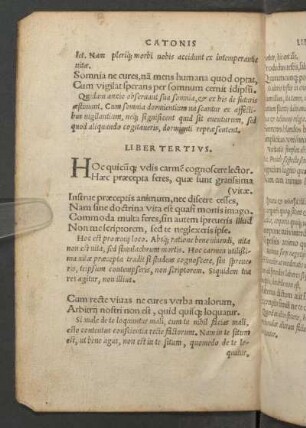 CATONIS
let. Nam pleriq; morbi nobis accidunt ex intemperantia
uitæ.
Somnia ne cures, nā mens humana quod optat,
Cum vigilat sperans per somnum cernit idipsū.
Quidam anxie obseruant sua somnia, & ex his de futuris
æstimant. Cum somnia dormientium nascantur ex affectibus
uigilantium, neq; significent quid sit euenturum, sed
quod aliquando cogitaueris, dormienti repræsentent.
LIBER TERTIVS.
HOc quicūq; velis carmē cognoscere lector.
Hæc præcepta feres, quæ sunt gratissima
(vitæ.
Instrue præceptis animum, nec discere cesses,
Nam sine doctrina vita est quasi mortis imago.
Commoda multa feres, sin autem spreueris illud
Non me scriptorem, sed te neglexeris ipse.
Hoc est prooemij loco. Absq; ratione bene uiuendi, uita
non est uita, sed
Hoc carmen utilissima
uitæ præcepta tradit si studeas cognoscere, sin spreueris,
teipsum contempseris, non scriptorem. Siquidem tua
res agitur, non illius.
Cum recte viuas ne cures verba malorum,
Arbitrii nostri non est, quid quisq; loquatur.
Si male de te loquuntur mali, cum tu nihil facias mali,
esto contentus conscientia recte factorum. Nam in te situm
est, ut bene agas, non est in te situm, quomodo de te loquatur,